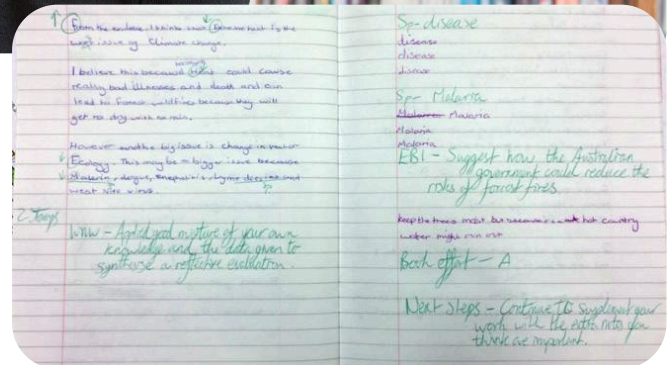 From the evidence, I think that Extreme heat is the
worst issue of Climate change.
warming
I believe this because Heat could cause
really bad illnesses and death and can
lead to forest wildfires because they will
get so dry with no rain.
However another big issue is change in vector
Ecology. This may be a bigger issue because
Malaria, dengue, lyme and
west Nile virus.
WWW - A good mixture of your own
knowledge and the data given to
synthesise a reflective evaluation.
Sp - disease
disease
disease
disease
Sp - Malaria
Malaria
Malaria
Malaria
EBI - Suggest how the Australian
government could reduce the
risks of forrest fires
keep the trees moist but because a hot country
water might run out
Book effort - A
Next steps - Continue to supplement your
work with the extra notes you
think are important.